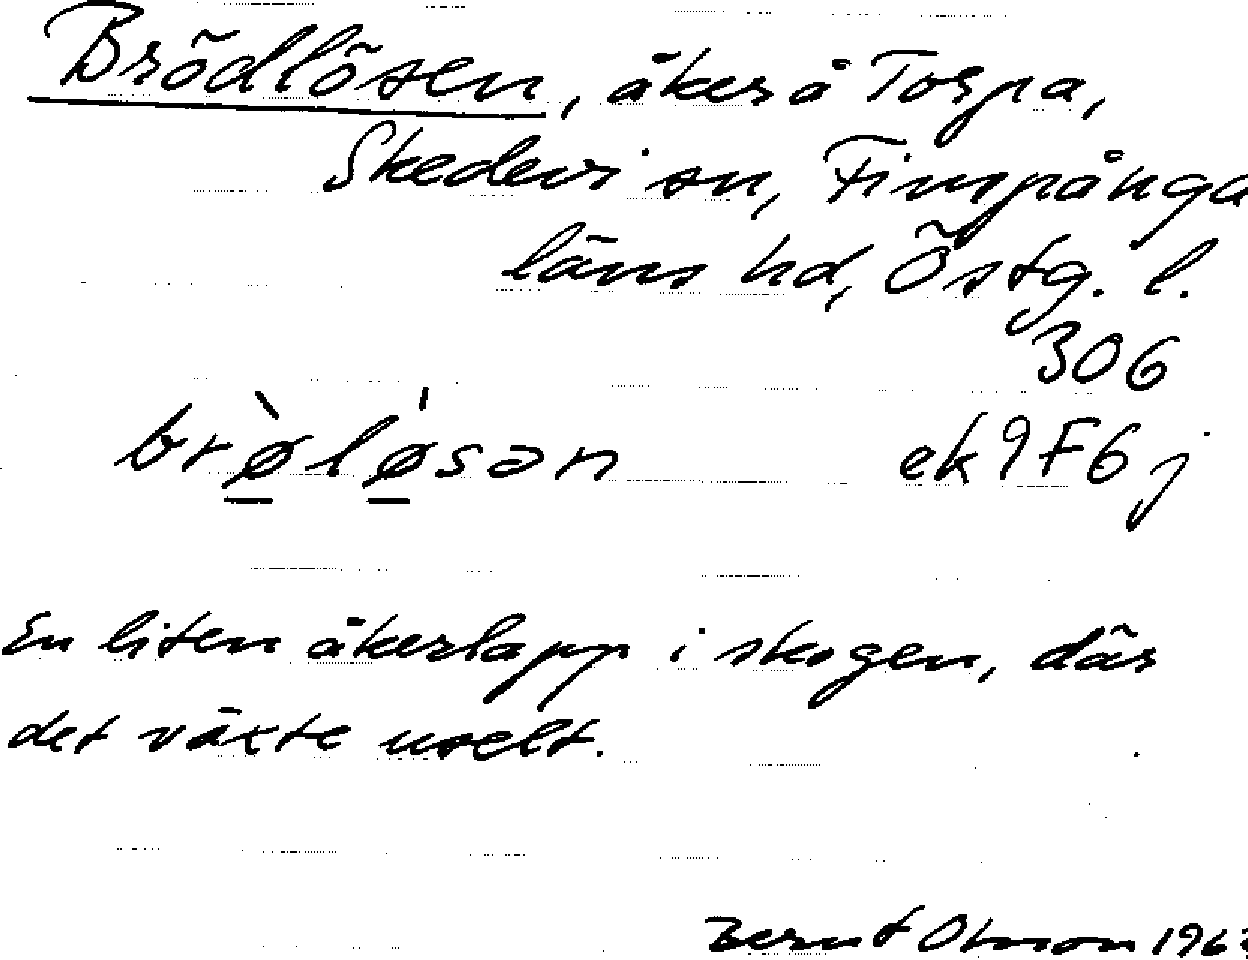 Brödlösen, åker å Torpa,
Skedevi sn, Finspånga
läns hd, Östg. l.
306
brø̱̀lǿ̱sən ek 9F6j
En liten åkerlapp i skogen, där
det växte uselt.
Bernt Olsson